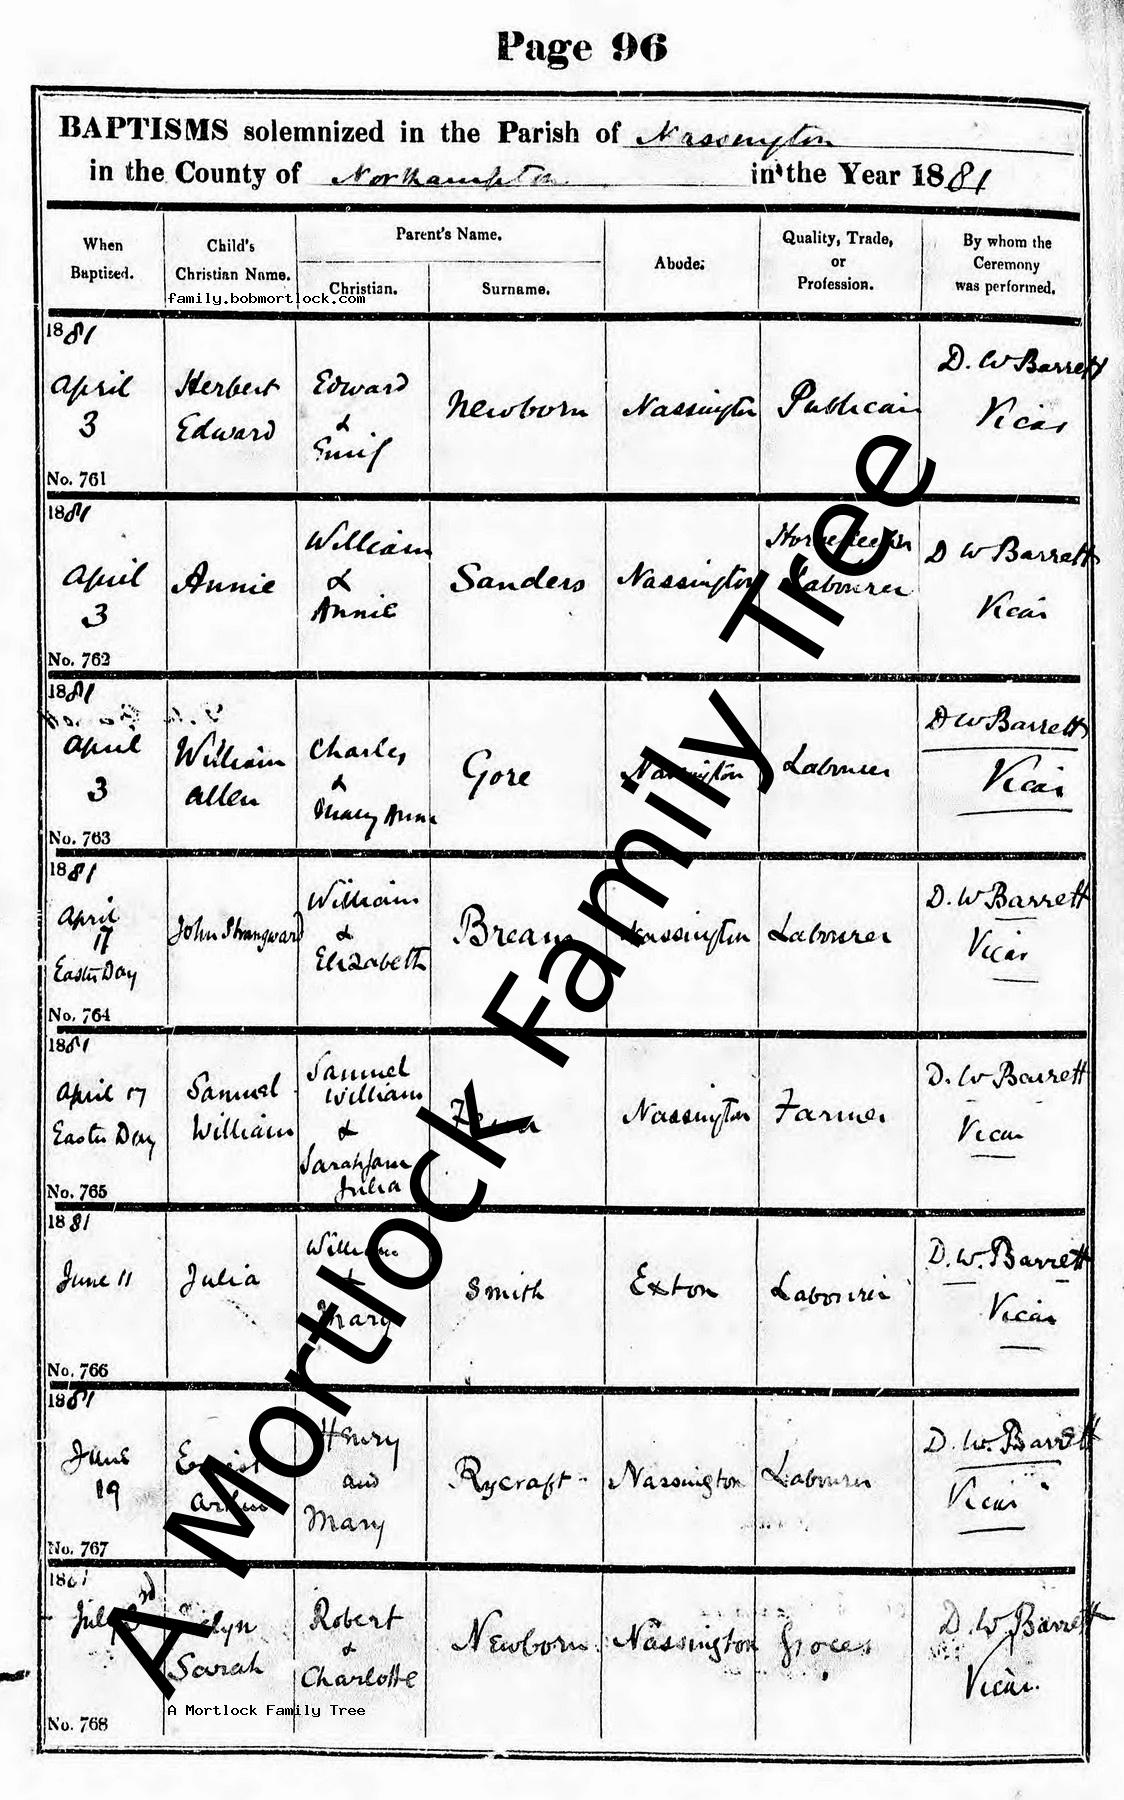 Page 96
BAPTISMS solemnized in the Parish of Nassington
in the County of Northampton in the Year 1881
When Baptized.
Child's Christian Name.
Parent's Name.
Christian.
Surname.
Abode.
Quality, Trade, or Profession.
By whom the Ceremony was performed.
family.bobmortlock.com
1881
April 3
Herbert Edward
Edward &
Newborn
Nassington
Publican
D. W Barrett Vicar
No. 761
1881
April 3
Annie
William & Annie
Sanders
Nassington
Labourer
D W Barrett Vicar
No. 762
1881
April 3
William Allen
Charles & Mary Anne
Gore
Nassington
Labourer
D W Barrett Vicar
No. 763
1881
April 17 Easter Day
John Strangward
William & Elizabeth
Bream
Nassington
Labourer
D. W Barrett Vicar
No. 764
1881
April 17 Easter Day
Samuel William
Samuel William & Sarah Jane Julia
Nassington
Farmer
D. W Barrett Vicar
No. 765
1881
June 11
Julia
William & Mary
Smith
Exton
Labourer
D. W. Barrett Vicar
No. 766
1881
June 19
Ernest Arthur
Henry and Mary
Rycraft
Nassington
Labourer
D. W. Barrett Vicar
No. 767
1881
July 3rd
Sarah
Robert & Charlotte
Newborn
Nassington
Grocer
D. W Barrett Vicar
No. 768
A Mortlock Family Tree
A Mortlock Family Tree